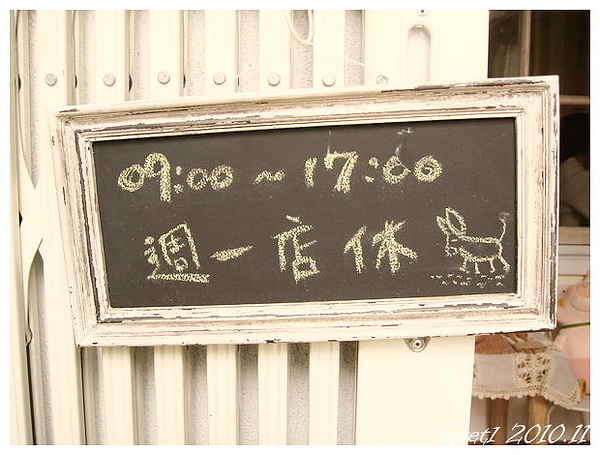 09:00 ~ 17:00
週一店休
2010.11